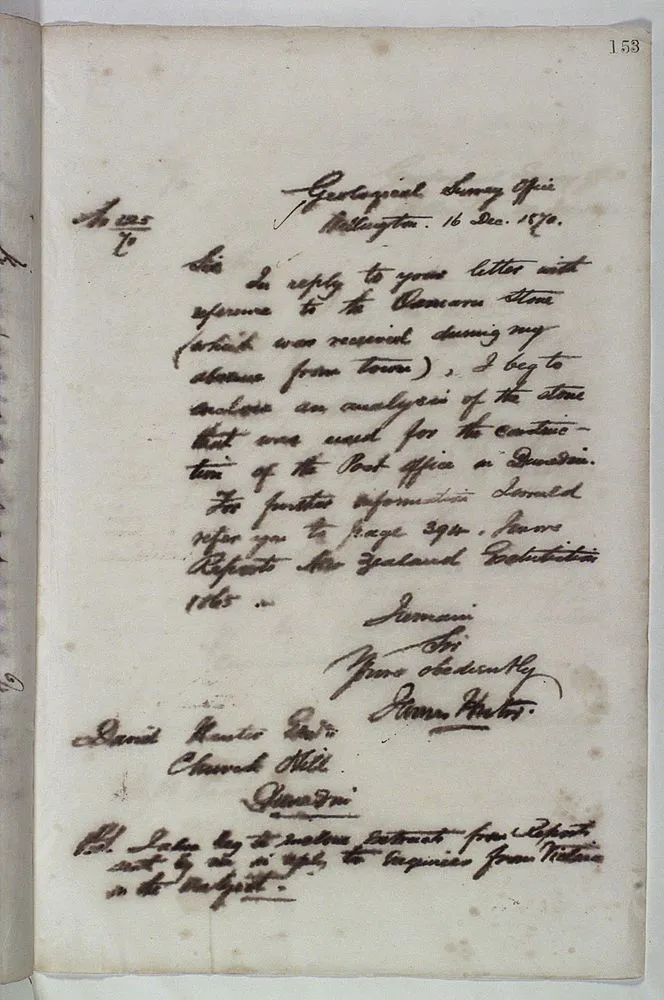 153
Geological Survey Office
Wellington. 16 Dec. 1870.
No 125
70
Sir
In reply to your letter with
reference to the Oamaru Stone
(which was received during my
absence from town), I beg to
enclose an analysis of the stone
that was used for the construc-
tion of the Post Office in Dunedin.
For further information I would
refer you to page 394. Jurors
Reports New Zealand Exhibition
1865.
I remain
Sir
Yours obediently
James Hector.
David Hunter Esqre
Church Hill
Dunedin
P.S. I also beg to enclose extracts from Reports
sent by me in reply to enquiries from Victoria
on the subject.